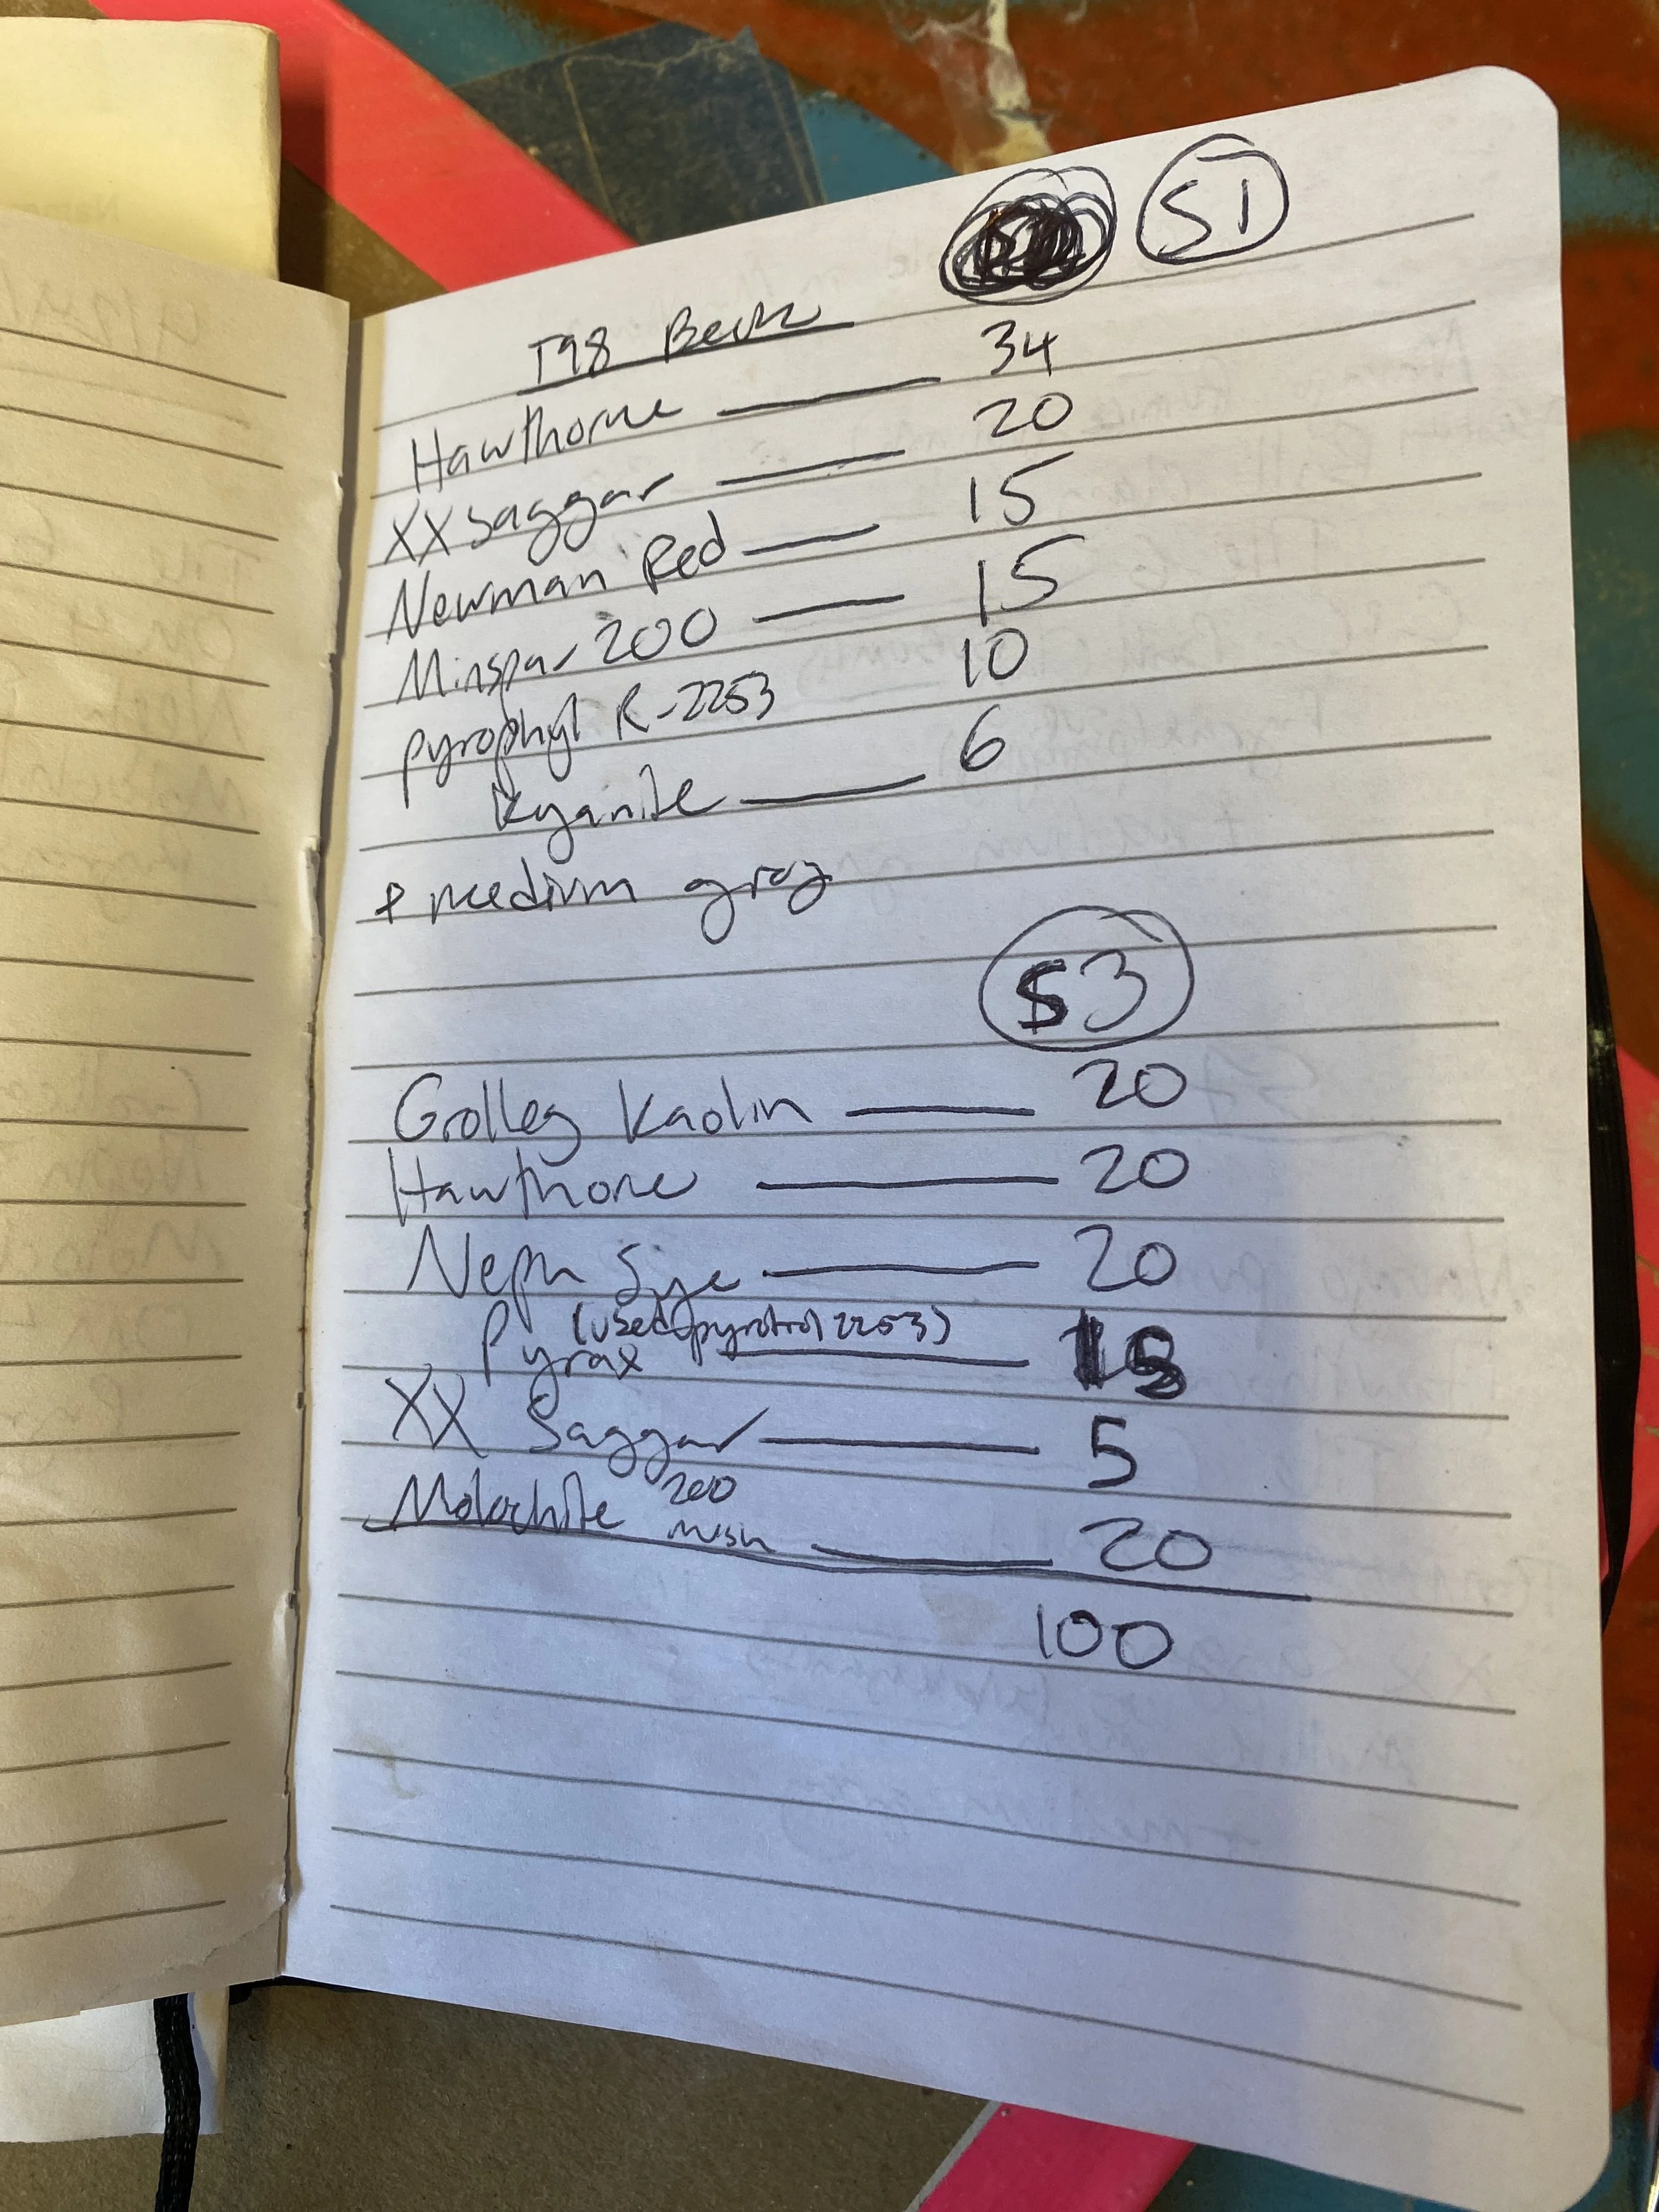 S1
T98 Beck
Hawthorne — 34
XX Saggar — 20
Newman Red — 15
Minspar 200 — 15
pyrophyl R-2253 10
Kyanite — 6
+ medium grog
S3
Grolleg Kaolin — 20
Hawthorne — 20
Neph Sye — 20
(used pyrotrol 2253)
Pyrax — 15
XX Saggar — 5
Molochite 200 mesh — 20
100